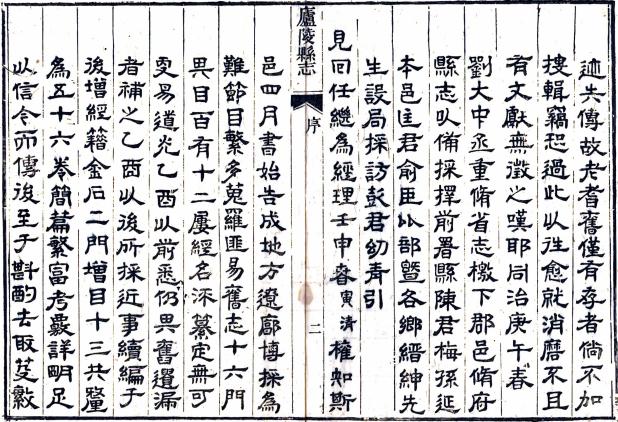 迹失傳故老耆舊僅有存者倘不加
搜輯竊恐過此以往愈就消磨不且
有文獻無徵之嘆耶同治庚午春
劉大中丞重脩省志檄下郡邑脩府
縣志以備採擇前署縣陳君梅孫延
本邑匡君俞臣比部暨各鄉縉紳先
生設局採訪彭君幼青引
見回任繼為經理壬申春寅清權知斯
廬陵縣志
序
二
邑四月書始告成地方遼廓博採為
難節目繁多蒐羅匪易舊志十六門
其目百有十二屢經名流纂定無可
更易道光乙酉以前悉仍其舊遺漏
者補之乙酉以後所採近事續編于
後增經籍金石二門增目十三共釐
為五十六卷簡篇繁富考覈詳明足
以信今而傳後至于斟酌去取芟